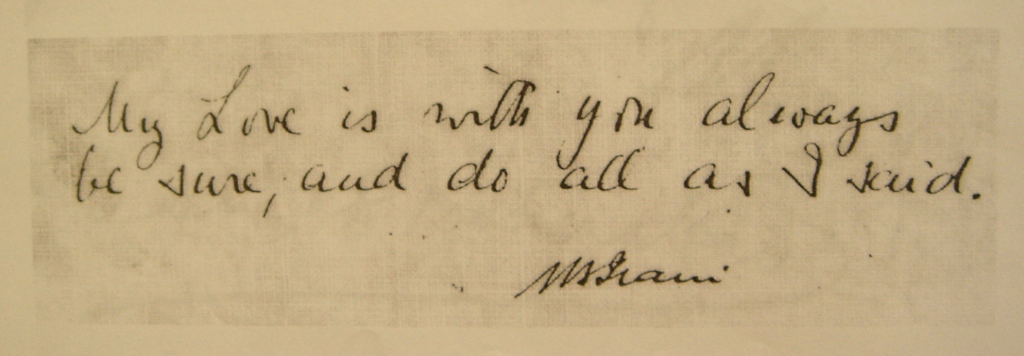 My Love is with you always
be sure, and do all as I said.
MSIrani